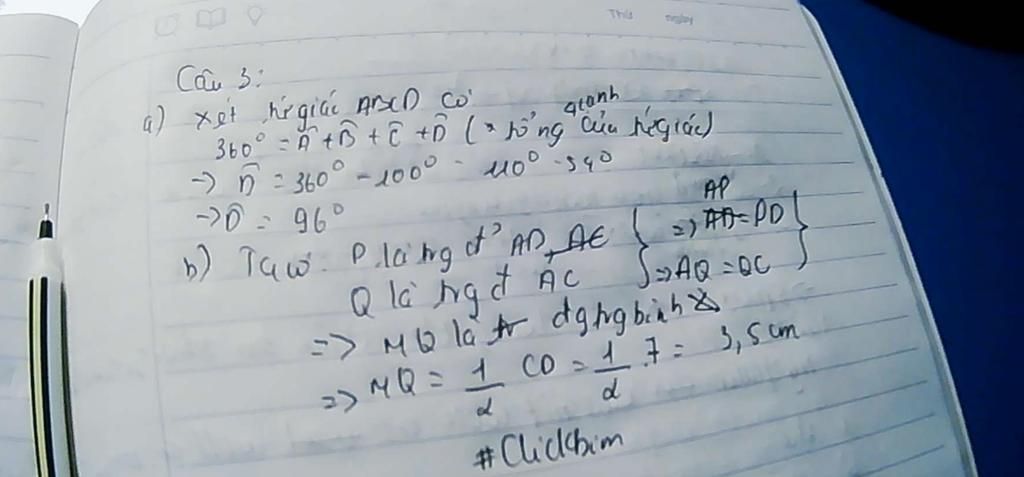 Thứ ngày
Câu 3:
a) xét tứ giác ABCD có
360° = Â + B̂ + Ĉ + D̂ ( tổng 4 cạnh của tứ giác)
→ D̂ = 360° - 100° - 110° - 54°
→ D̂ = 96°
b) Ta có: P là trg đ' AD, AC } => AP = PD }
Q là trg đ AC } => AQ = QC }
=> MQ là đg trg bình
=> MQ = 1/2 CD = 1/2 . 7 = 3,5 cm
#Clickbim